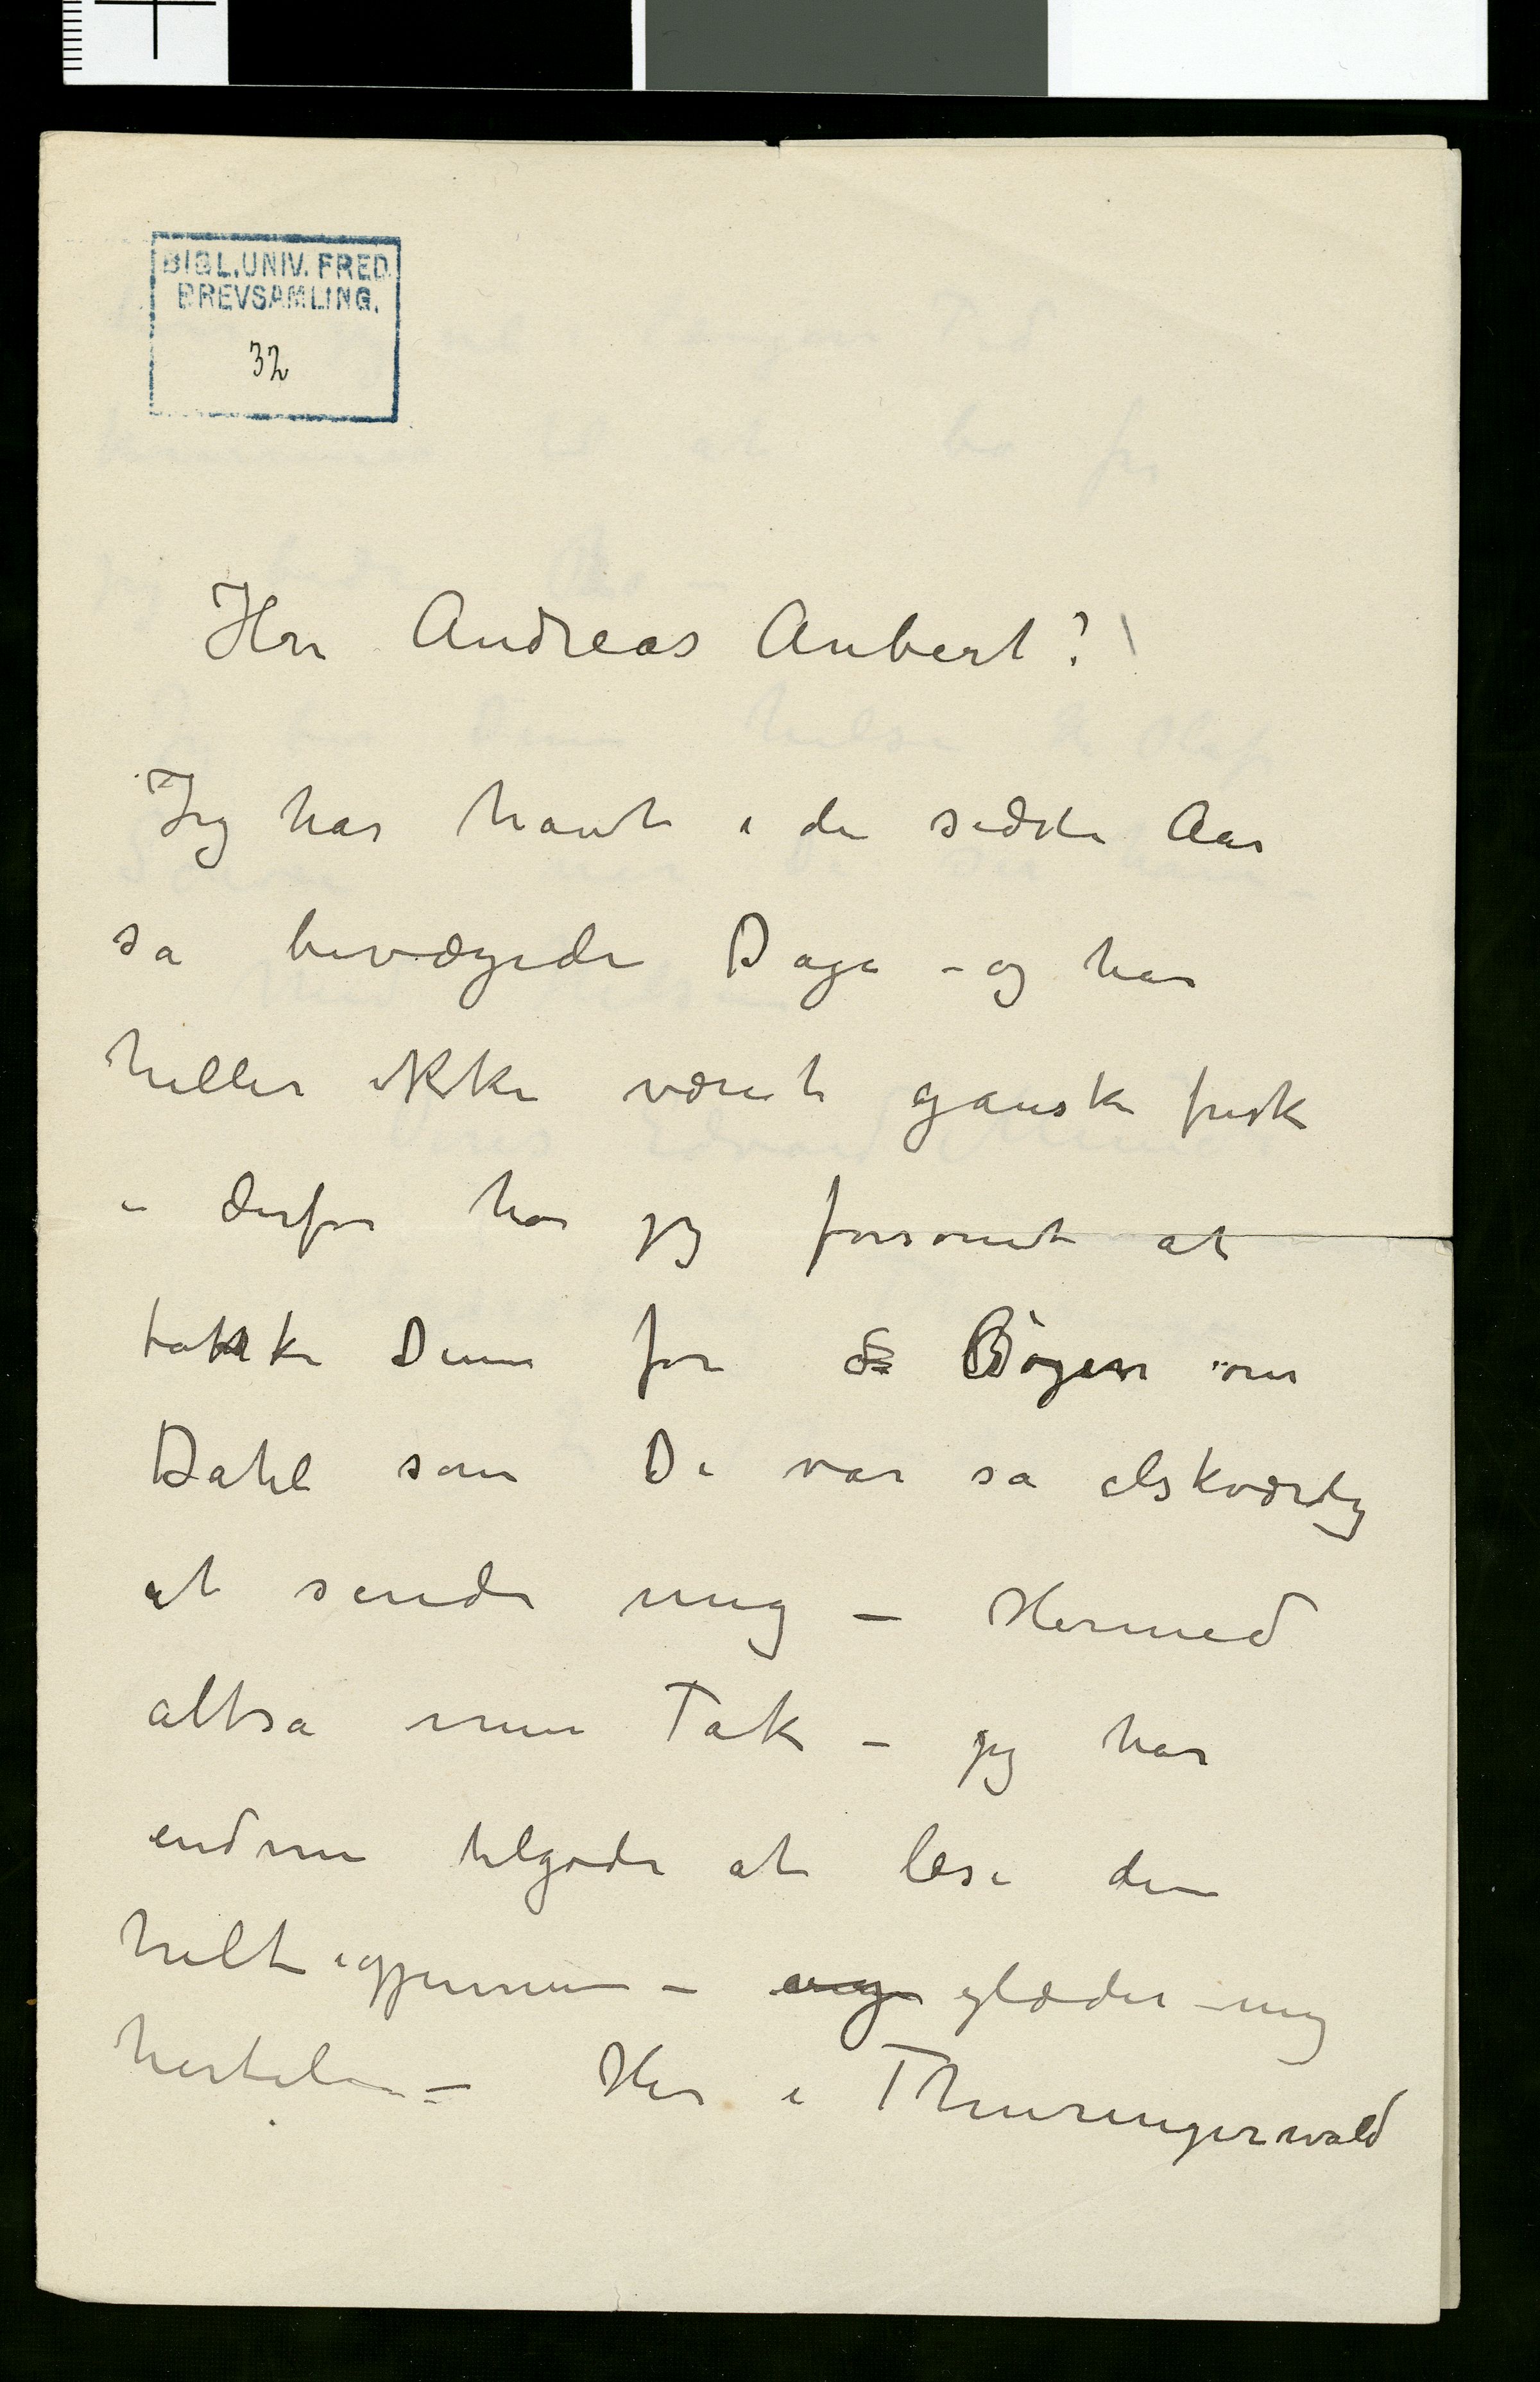 BIBL. UNIV. FRED.
BREVSAMLING.
32
Herr Andreas Aubert!
Jeg har havt i de sidste Aar
sa bevægede Dage – og har
heller ikke været ganske frisk
– derfor har jeg forsømt at
takke Dem for Bogen om
Dahl som De var sa elskværdig
at sende mig – Hermed
altsa min Tak – jeg har
endnu tilgode at læse den
helt igjennem – glæder mig
hertil – Her i Thuringerwald